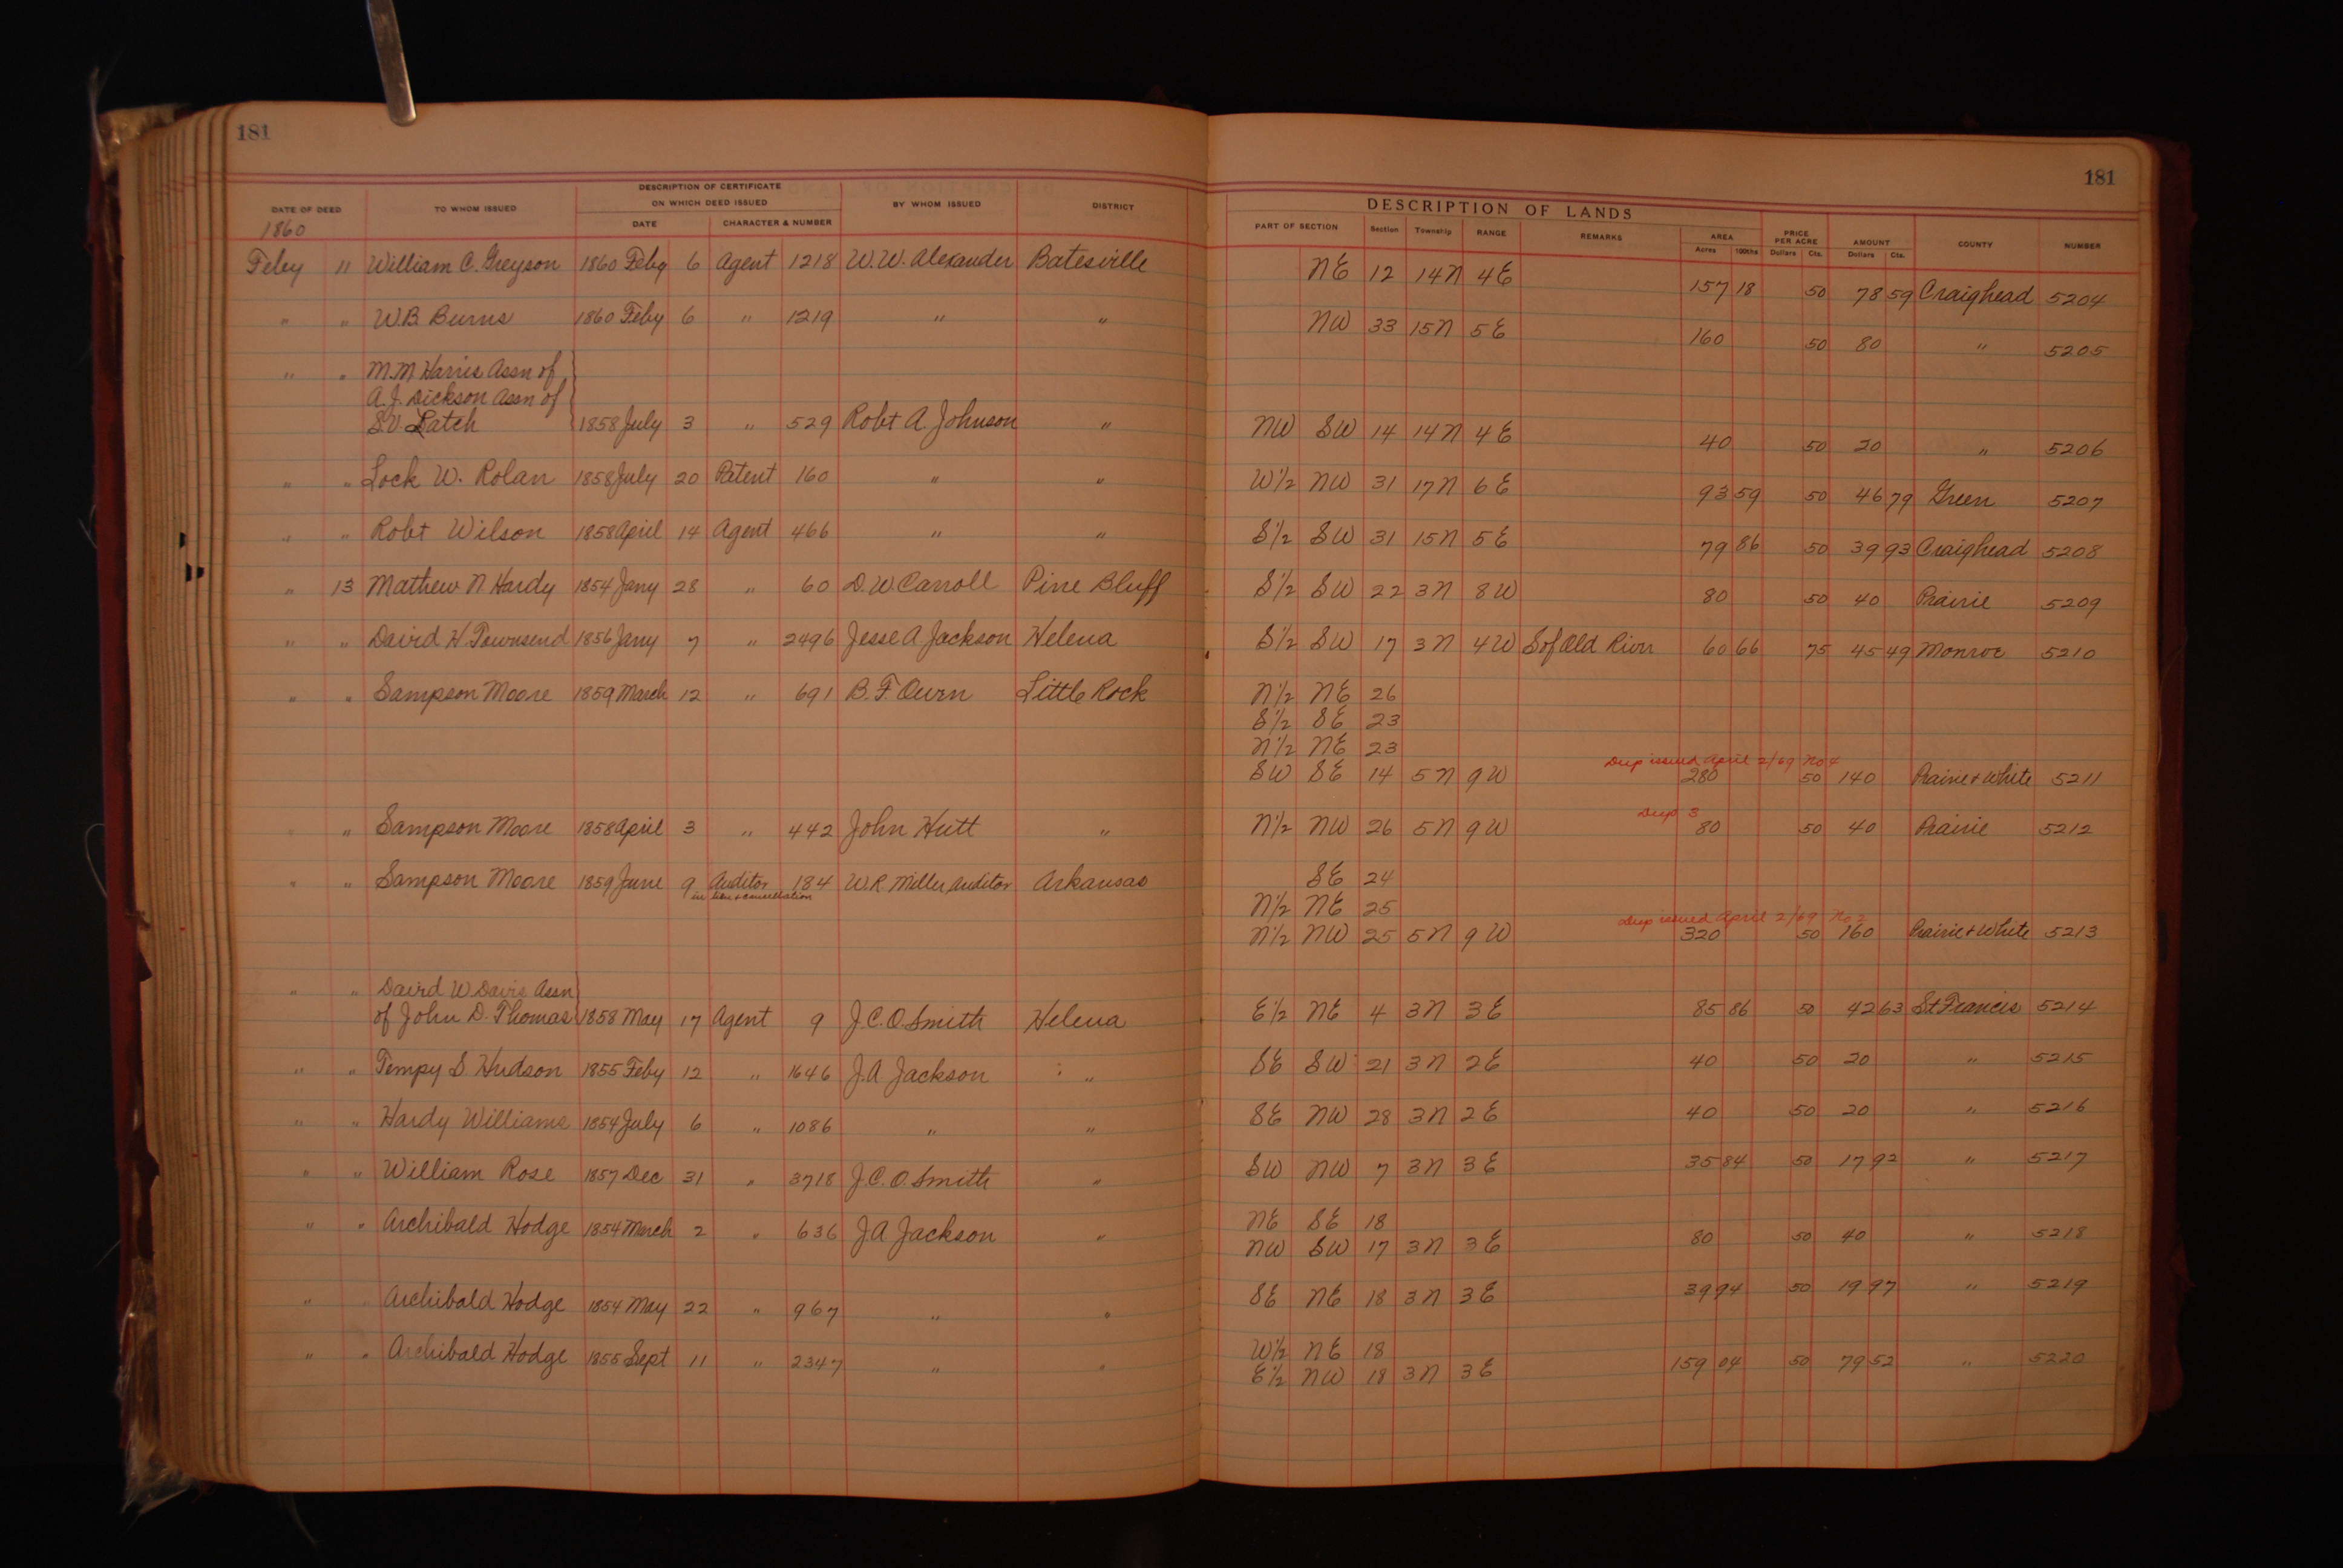 181
DESCRIPTION OF CERTIFICATE
ON WHICH DEED ISSUED
DATE OF DEED TO WHOM ISSUED DATE CHARACTER & NUMBER BY WHOM ISSUED DISTRICT
1860
Feby 11 William C. Greyson 1860 Feby 6 Agent 1218 W.W. Alexander Batesville
" " W.B. Burns 1860 Feby 6 " 1219 " "
" " M.M Harris Assn of
A.J. Dickson Assn of
S.V. Latch 1858 July 3 " 529 Robt A. Johnson "
" " Lock W. Rolan 1858 July 20 Patent 160 " "
" " Robt Wilson 1858 April 14 Agent 466 " "
" 13 Mathew N. Hardy 1854 Jany 28 " 60 D.W. Carroll Pine Bluff
" " David H. Townsend 1856 Jany 7 " 2496 Jesse A Jackson Helena
" " Sampson Moore 1859 March 12 " 691 B.F. Owen Little Rock
" Sampson Moore 1858 April 3 " 442 John Hutt "
" " Sampson Moore 1859 June 9 Auditor 184 W.R. Miller, Auditor Arkansas
in lieu & cancellation
" " David W Davis Assn
of John D. Thomas 1858 May 17 Agent 9 J.C.O. Smith Helena
" " Tempy S. Hudson 1855 Feby 12 " 1646 J.A Jackson "
" " Hardy Williams 1854 July 6 " 1086 " "
" " William Rose 1857 Dec 31 " 3718 J.C.O. Smith "
" " Archibald Hodge 1854 March 2 " 636 J.A Jackson "
" " Archibald Hodge 1854 May 22 " 967 " "
" " Archibald Hodge 1855 Sept 11 " 2347 " "
181
DESCRIPTION OF LANDS
PART OF SECTION Section Township RANGE REMARKS AREA PRICE PER ACRE AMOUNT COUNTY NUMBER
Acres 100ths Dollars Cts. Dollars Cts.
NE 12 14N 4E 157 18 50 78 59 Craighead 5204
NW 33 15N 5E 160 50 80 " 5205
NW SW 14 14N 4E 40 50 20 " 5206
W1/2 NW 31 17N 6E 93 59 50 46 79 Green 5207
S1/2 SW 31 15N 5E 79 86 50 39 93 Craighead 5208
S1/2 SW 22 3N 8W 80 50 40 Prairie 5209
S1/2 SW 17 3N 4W S of Old River 60 66 75 45 49 Monroe 5210
N1/2 NE 26
S1/2 SE 23
N1/2 NE 23
Dup issued April 2/69 No 4
SW SE 14 5N 9W 280 50 140 Prairie & White 5211
Dup 3
N1/2 NW 26 5N 9W 80 50 40 Prairie 5212
SE 24
N1/2 NE 25
Dup issued April 2/69 No 2
N1/2 NW 25 5N 9W 320 50 160 Prairie & White 5213
E1/2 NE 4 3N 3E 85 86 50 42 63 St Francis 5214
SE SW 21 3N 2E 40 50 20 " 5215
SE NW 28 3N 2E 40 50 20 " 5216
SW NW 7 3N 3E 35 84 50 17 92 " 5217
NE SE 18
NW SW 17 3N 3E 80 50 40 " 5218
SE NE 18 3N 3E 39 94 50 19 97 " 5219
W1/2 NE 18
E1/2 NW 18 3N 3E 159 04 50 79 52 " 5220